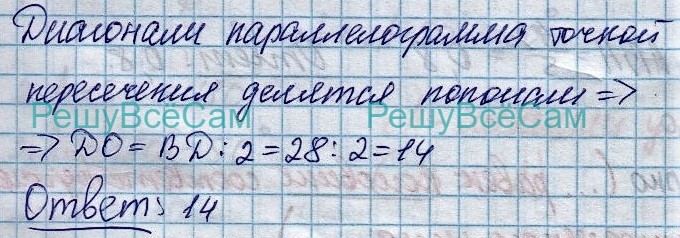 Диагонали параллелограмма точкой
пересечения делятся пополам =>
РешуВсеСам РешуВсеСам
=> DO = BD : 2 = 28 : 2 = 14
Ответ: 14